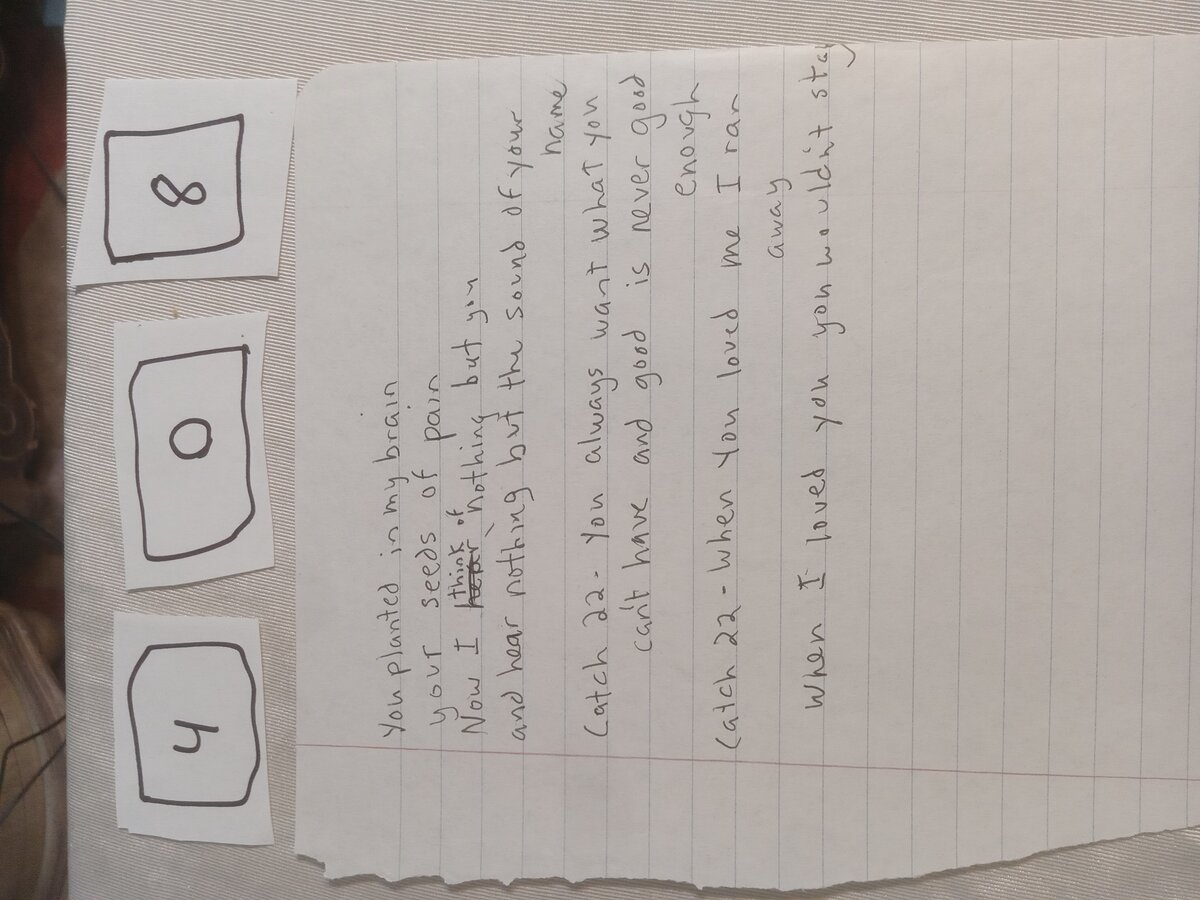 4 0 8
You planted in my brain
your seeds of pain
Now I think of nothing but you
and hear nothing but the sound of your
name
Catch 22 - You always want what you
can't have and good is never good
enough
Catch 22 - When You loved me I ran
away
When I loved you you wouldn't stay